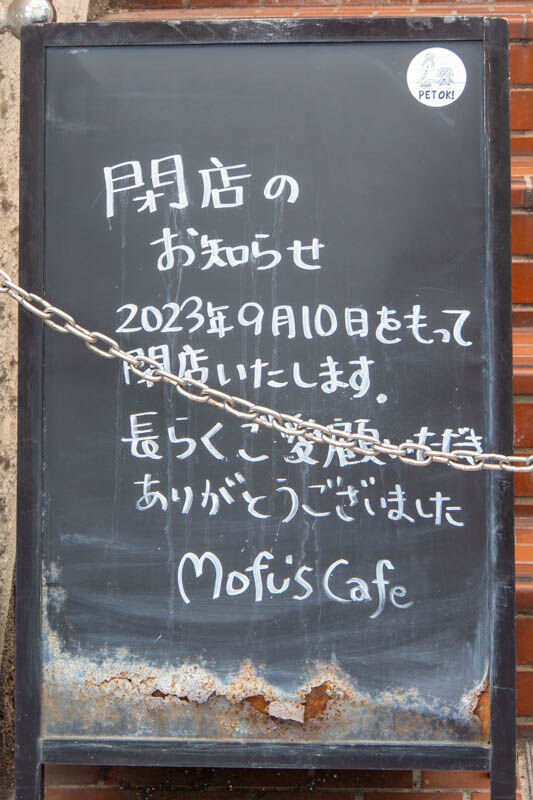 PET OK!
閉店の
お知らせ
2023年9月10日をもって
閉店いたします。
長らくご愛顧いただき
ありがとうございました
Mofu's Cafe